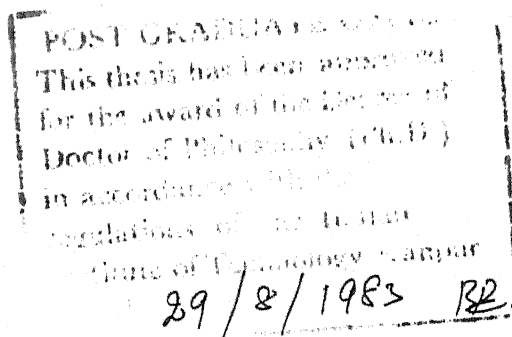 POST GRADUATE
This thesis has been approved
for the award of the Degree of
Doctor of Philosophy (Ph.D.)
in accordance
regulations of the Indian
Institute of Technology Kanpur
29/8/1983 BR